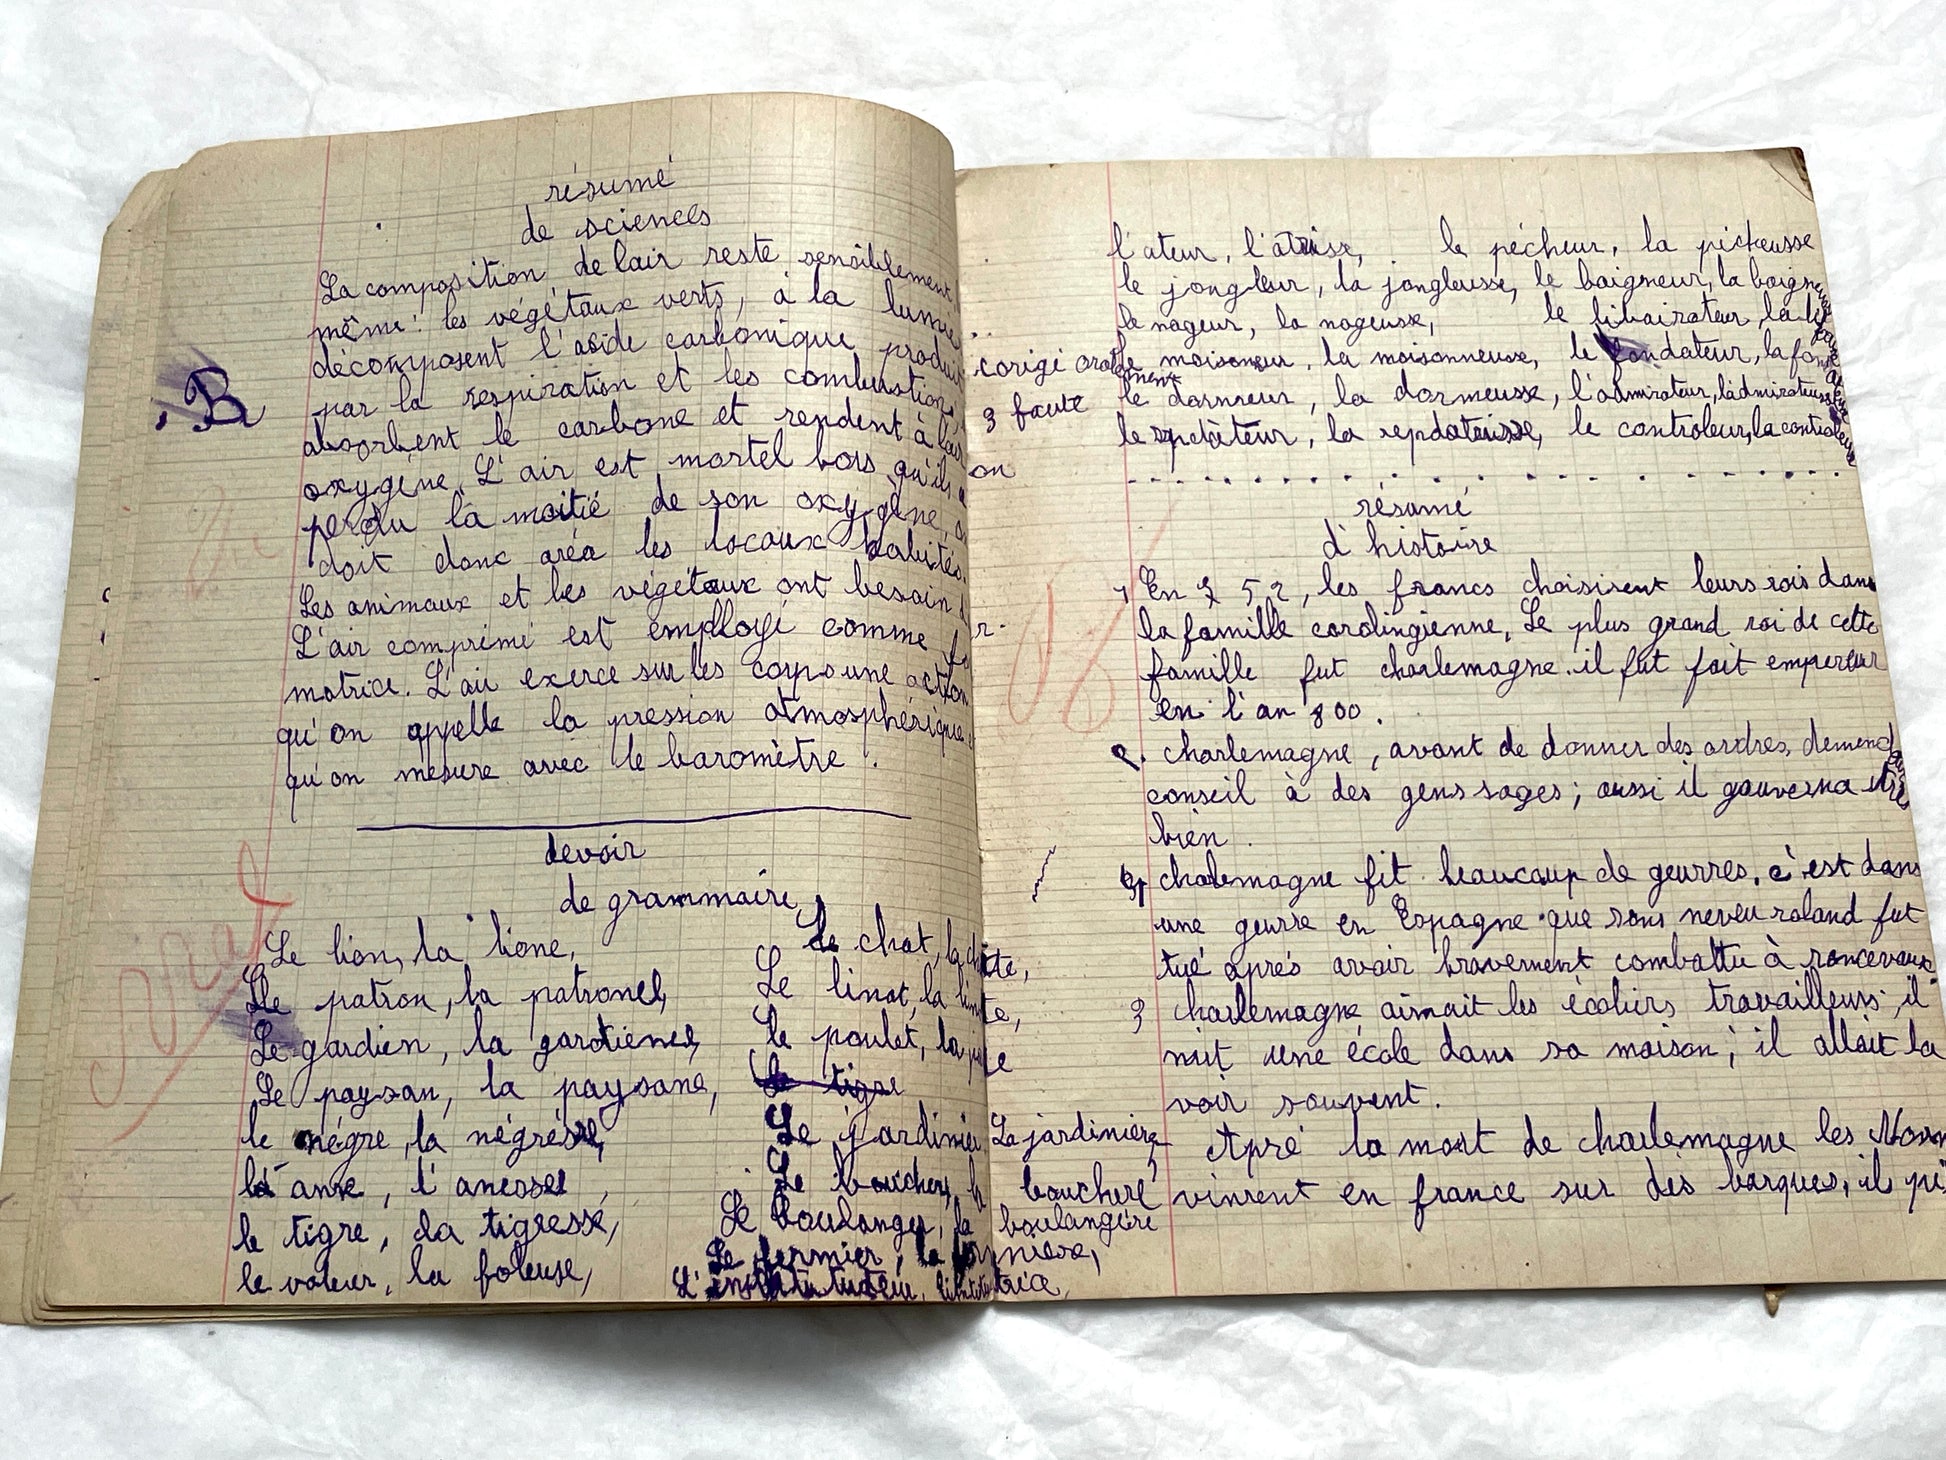 résumé
de sciences
La composition de lair reste sensiblement
même : les végétaux verts, à la lumie
décomposent l'aside carbonique produi
par la respiration et les combustion,
absorbent le carbone et rendent à lair
oxygéne. L'air est mortel lors qu'ils a
perdu la moitié de son oxygène, on
doit donc aréa les locaux habités.
Les animaux et les végétaux ont besoin d
L'air comprimé est employé comme fo
matrice. L'air exerce sur les corps une action
qu'on appelle la pression atmosphérique
qu'on mesure avec le baromètre.
B
devoir
de grammaire
Le lion, la lione, le chat, la chatte,
Le patron, la patrone, Le linot, la linote,
Le gardien, la gardiene, le poulet, la
Le paysan, la paysane, le tigre
le négre, la négrésse, Le jardinier La jardinière
anne, l'anesse, Le boucher, la boucherè
le tigre, la tigresse, Le boulanger, la boulangére
le voleur, la voleuse, Le fermier, la fermiere,
L'institituteur, trice,
l'ateur, l'atrisse, le pécheur, la pécheusse
le jongleur, la jongleusse, le baigneur, la baigneuse
le nageur, la nageuse, le libairateur, la
corigi oralement
le moisoneur, la moisonneuse, le fondateur, la
3 faute
le dormeur, la dormeusse, l'admirateur, l'admirateuse
le, la, le controleur, la controleuse
résumé
d'histoire
1 En 752, les francs choisirent leurs rois dans
la famille carolingienne, Le plus grand roi de cette
famille fut charlemagne. il fut fait empereur
en l'an 800.
2. charlemagne, avant de donner des ordres, demendait
conseil à des gens sages; aussi il gouverna très
bien.
3 charlemagne fit beaucoup de geurres. c'est dans
une geurre en Espagne que sons neveu roland fut
tué aprés avoir bravement combattu à roncevaux
3 charlemagne aimait les écoliers travailleurs; il
mit une école dans sa maison; il allait la
voir souvent.
Apré la mort de charlemagne les Norm
vinrent en france sur des barques, il pi